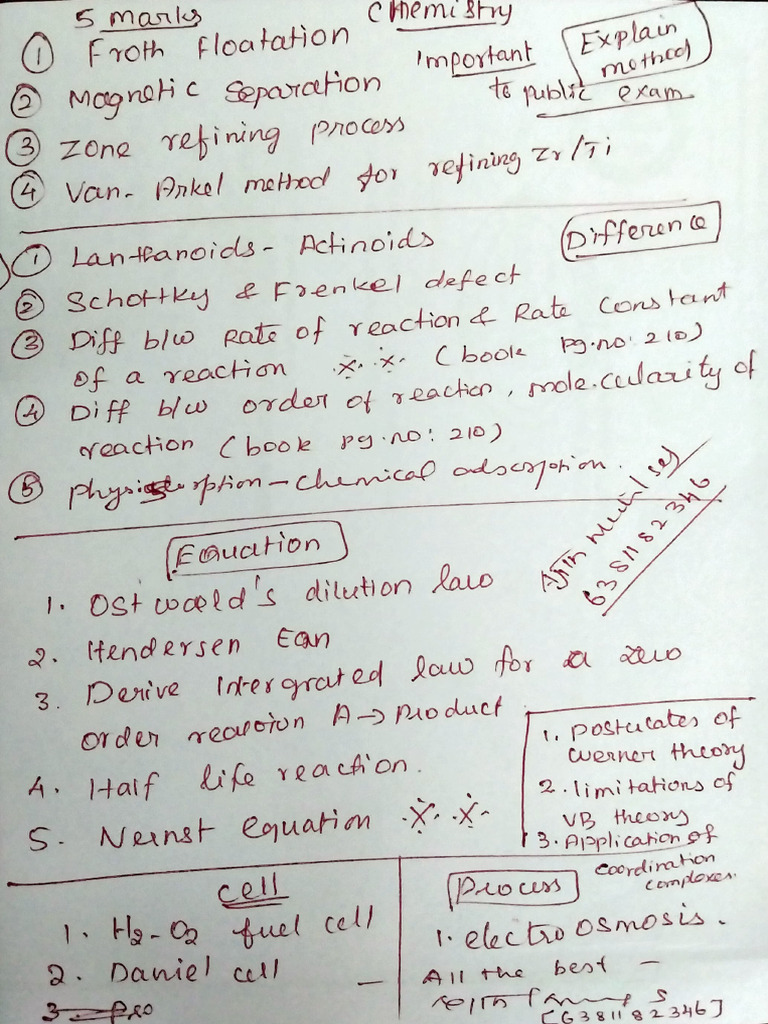 5 marks Chemistry
① Froth floatation Important Explain method
② Magnetic Separation to public exam
③ Zone refining process
④ Van-Arkel method for refining Zr/Ti
① Lanthanoids - Actinoids Difference
② Schottky & Frenkel defect
③ Diff b/w Rate of reaction & Rate Constant
of a reaction (book pg.no: 210)
④ Diff b/w order of reaction, mole.cularity of
reaction (book pg.no: 210)
⑤ physisorption - chemical adsorption.
6381182346
Equation
1. Ostwald's dilution law
2. Hendersen Eqn
3. Derive Intergrated law for a zero
order reaction A → Product
4. Half life reaction.
5. Nernst equation
1. Postulates of
werner theory
2. limitations of
VB theory
3. Application of
coordination
complexes.
cell
1. H2-O2 fuel cell
2. Daniel cell
3. Pro
Process
1. electro osmosis.
All the best -
[6381182346]